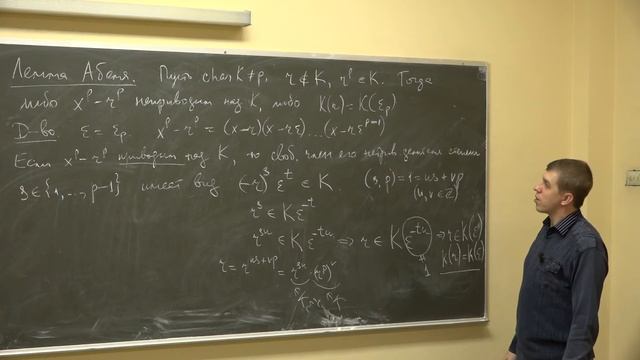 Лемма Абеля. Пусть char K ≠ p, r ∉ K, r^p ∈ K. Тогда
либо x^p − r^p неприводим над K, либо K(r) = K(ε_p)
Д-во. ε = ε_p. x^p − r^p = (x−r)(x−rε)...(x−rε^{p−1})
Если x^p − r^p приводим над K, то своб. член его неприв. делителя степени
s ∈ {1,...,p−1} имеет вид (−r)^s ε^t ∈ K. (s,p) = 1 = us + vp
(u,v ∈ Z)
r^s ∈ Kε^{−t}
r^{su} ∈ Kε^{−tu} ⇒ r ∈ K ε^{−tu} ⇒ r ∈ K(ε)
≠ 1
K(r) = K(ε)
r = r^{us+vp} = r^{su} · (r^p)^v